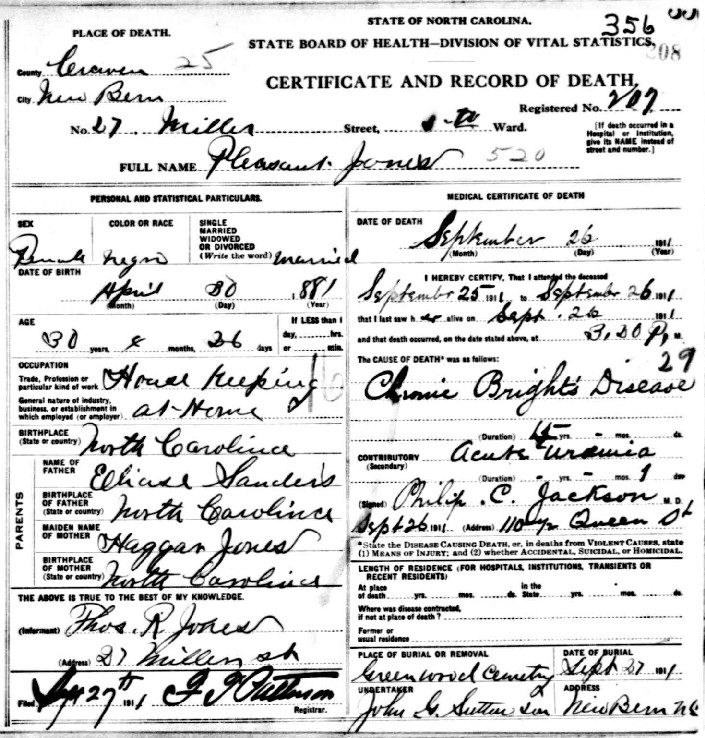 STATE OF NORTH CAROLINA.
356
STATE BOARD OF HEALTH—DIVISION OF VITAL STATISTICS,
208
CERTIFICATE AND RECORD OF DEATH,
PLACE OF DEATH.
County Craven 25
City New Bern
Registered No. 207
No. 27 Miller Street, Ward.
[If death occurred in a Hospital or Institution, give its NAME instead of street and number.]
FULL NAME Pleasant Jones 520
PERSONAL AND STATISTICAL PARTICULARS.
SEX
Female
COLOR OR RACE
Negro
SINGLE
MARRIED
WIDOWED
OR DIVORCED
(Write the word) Married
DATE OF BIRTH
April 30 , 1881
(Month) (Day) (Year)
AGE
30 years, months, 26 days
IF LESS than 1
day, hrs.
or min.
OCCUPATION
Trade, Profession or particular kind of work House Keeping
General nature of industry, business, or establishment in which employed (or employer) at Home
BIRTHPLACE
(State or country) North Carolina
PARENTS
NAME OF FATHER Sanders
BIRTHPLACE OF FATHER (State or country) North Carolina
MAIDEN NAME OF MOTHER Haggar Jones
BIRTHPLACE OF MOTHER (State or country) North Carolina
THE ABOVE IS TRUE TO THE BEST OF MY KNOWLEDGE.
(Informant) Thos. R. Jones
(Address) 27 Miller St
Filed Sept 27th 1911 Registrar.
MEDICAL CERTIFICATE OF DEATH
DATE OF DEATH
September 26 1911
(Month) (Day) (Year)
I HEREBY CERTIFY, That I attended the deceased
September 25 1911 to September 26 1911
that I last saw her alive on Sept. 26 1911
and that death occurred, on the date stated above, at 3.30 P. M.
The CAUSE OF DEATH* was as follows:
29
Chronic Bright's Disease
(Duration) yrs. - mos. ds.
CONTRIBUTORY Acute Uremia
(Secondary)
(Duration) - yrs. - mos. 1 ds.
(Signed) Philip. C. Jackson M. D.
Sept 26 1911 (Address) 110 Queen St
*State the DISEASE CAUSING DEATH, or, in deaths from VIOLENT CAUSES, state (1) MEANS OF INJURY; and (2) whether ACCIDENTAL, SUICIDAL, OR HOMICIDAL.
LENGTH OF RESIDENCE (FOR HOSPITALS, INSTITUTIONS, TRANSIENTS OR RECENT RESIDENTS)
At place of death yrs. mos. ds. In the State yrs. mos. ds.
Where was disease contracted, if not at place of death?
Former or usual residence
PLACE OF BURIAL OR REMOVAL
Greenwood Cemetery
DATE OF BURIAL
Sept 27 1911
UNDERTAKER
John G. Sutton Son
ADDRESS
New Bern NC